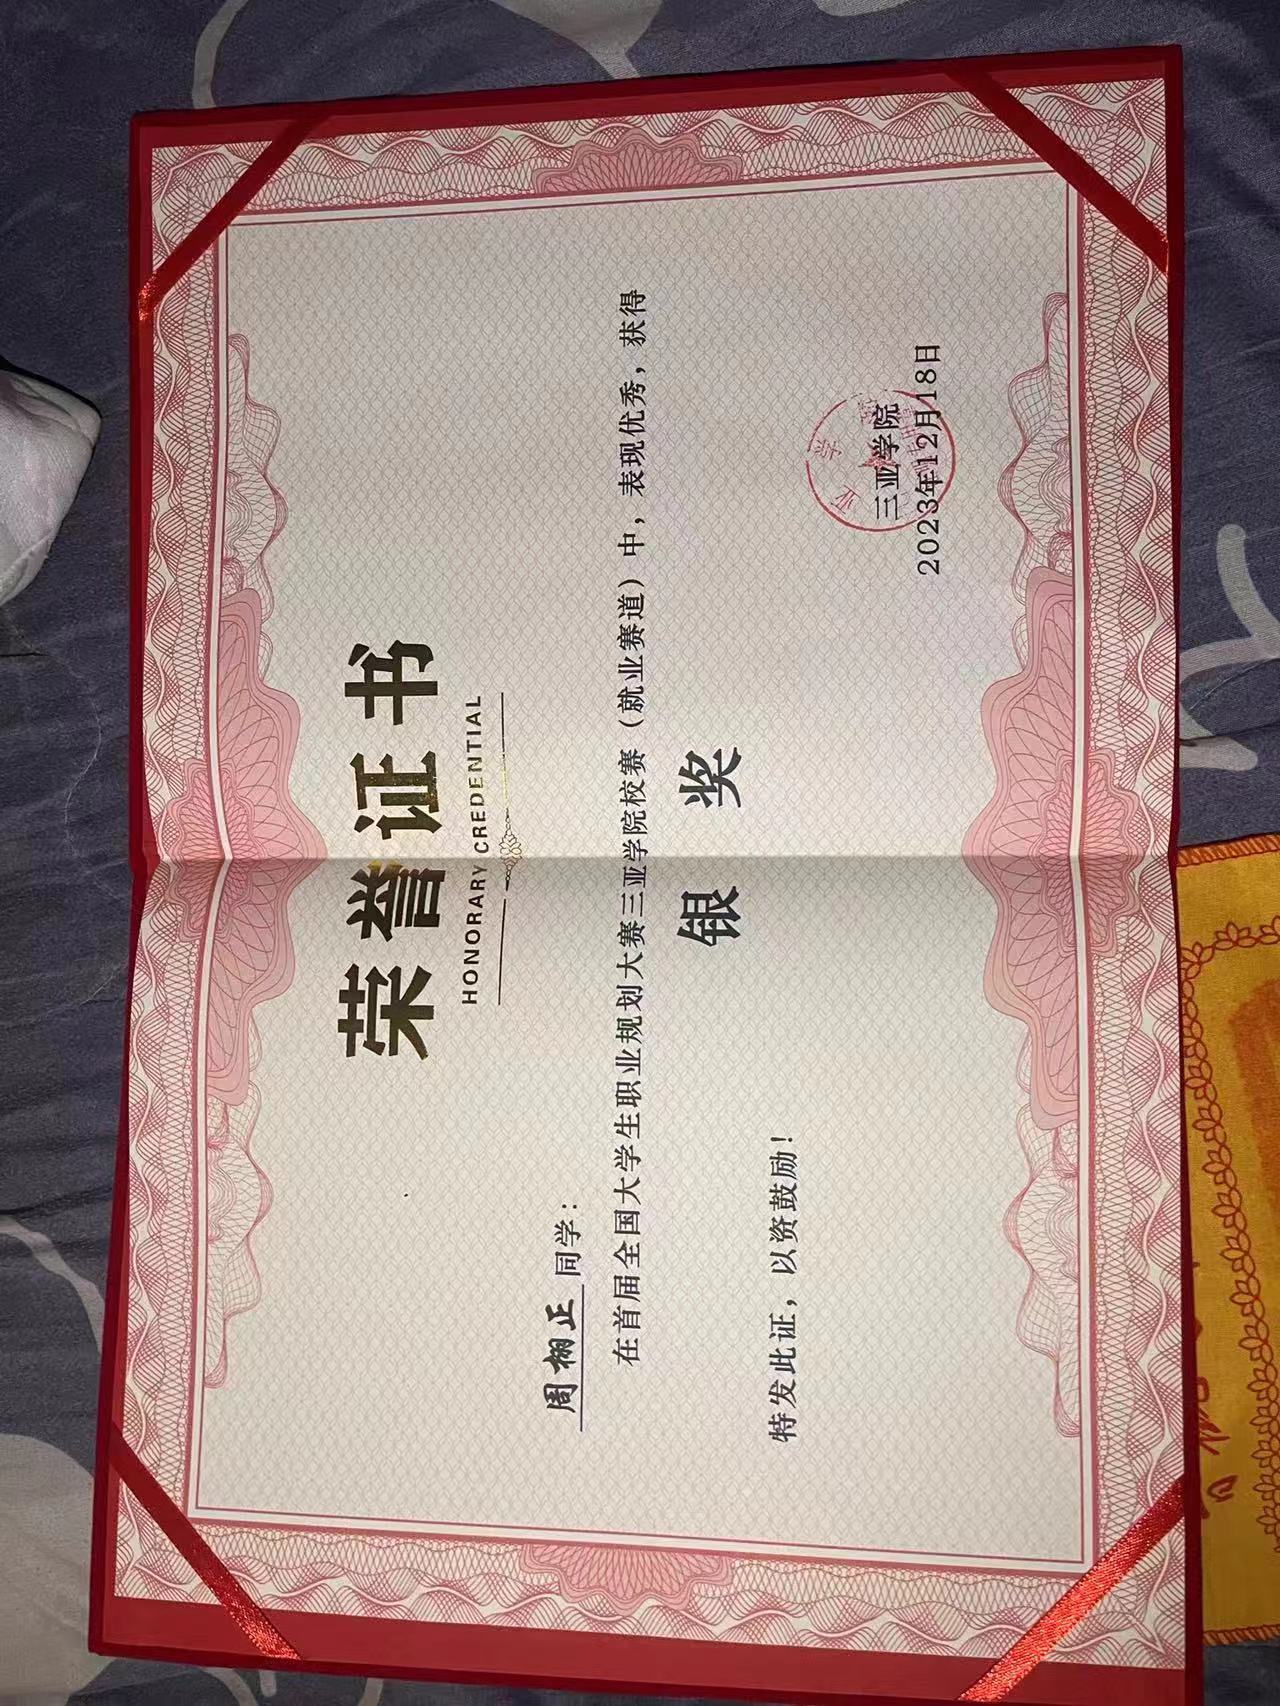 荣誉证书
HONORARY CREDENTIAL
周栩正同学：
在首届全国大学生职业规划大赛三亚学院校赛（就业赛道）中，表现优秀，获得
银 奖
特发此证，以资鼓励！
三亚学院
2023年12月18日